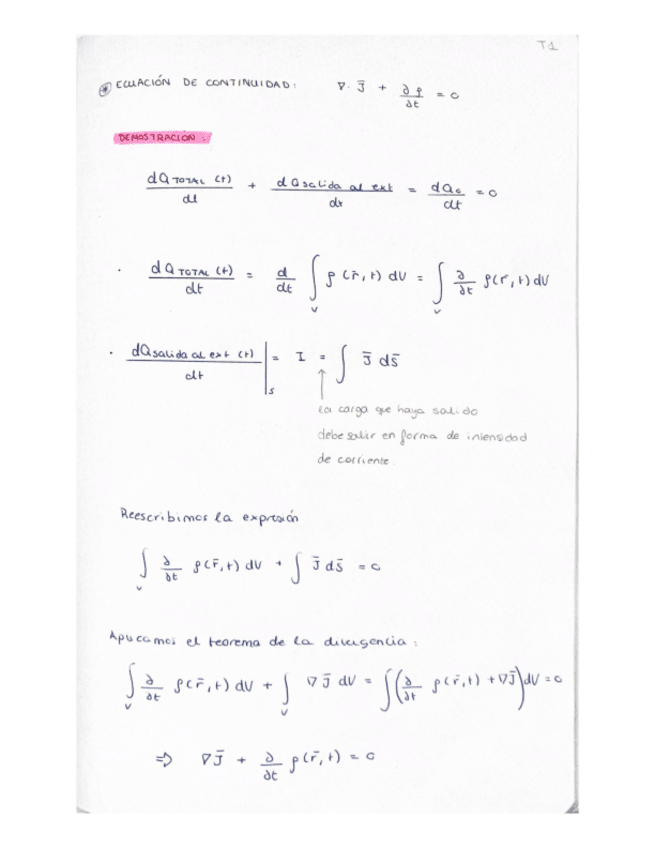 T1
* ECUACIÓN DE CONTINUIDAD: ∇· J̄ + ∂ρ/∂t = 0
DEMOSTRACIÓN:
dQ TOTAL (t)/dt + dQ salida al ext/dt = dQ₀/dt = 0
· dQ TOTAL (t)/dt = d/dt ∫_V ρ(r̄,t) dV = ∫_V ∂/∂t ρ(r̄,t) dV
· dQ salida al ext (t)/dt |_S = I = ∫ J̄ ds̄
la carga que haya salido
debe salir en forma de intensidad
de corriente.
Reescribimos la expresión
∫_V ∂/∂t ρ(r̄,t) dV + ∫ J̄ ds̄ = 0
Aplicamos el teorema de la divergencia:
∫_V ∂/∂t ρ(r̄,t) dV + ∫_V ∇ J̄ dV = ∫_V (∂/∂t ρ(r̄,t) + ∇J̄) dV = 0
⇒ ∇J̄ + ∂/∂t ρ(r̄,t) = 0